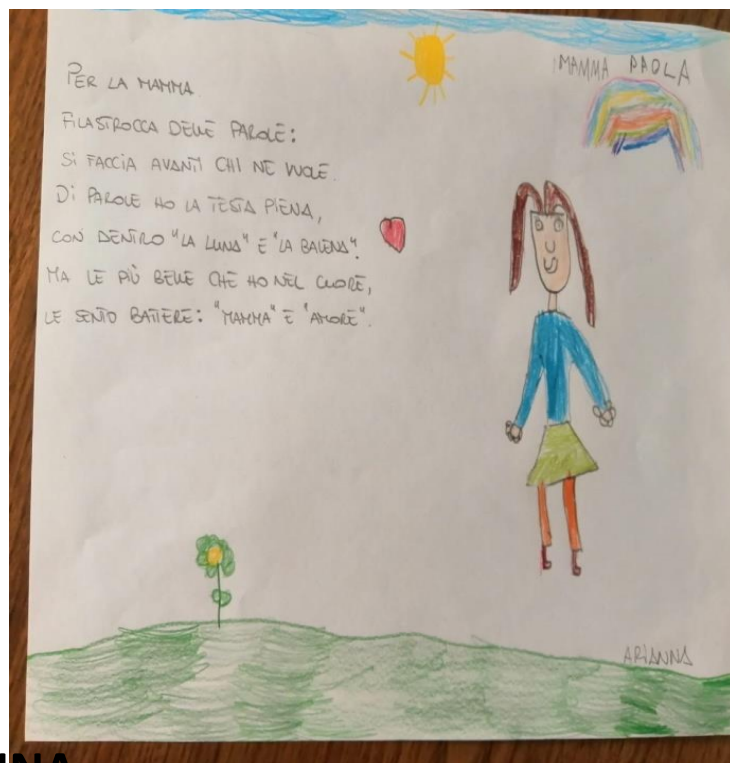 PER LA MAMMA
MAMMA PAOLA
FILASTROCCA DELLE PAROLE:
SI FACCIA AVANTI CHI NE VUOLE.
DI PAROLE HO LA TESTA PIENA,
CON DENTRO "LA LUNA" E "LA BALENA".
MA LE PIÙ BELLE CHE HO NEL CUORE,
LE SENTO BATTERE: "MAMMA" E "AMORE".
ARIANNA